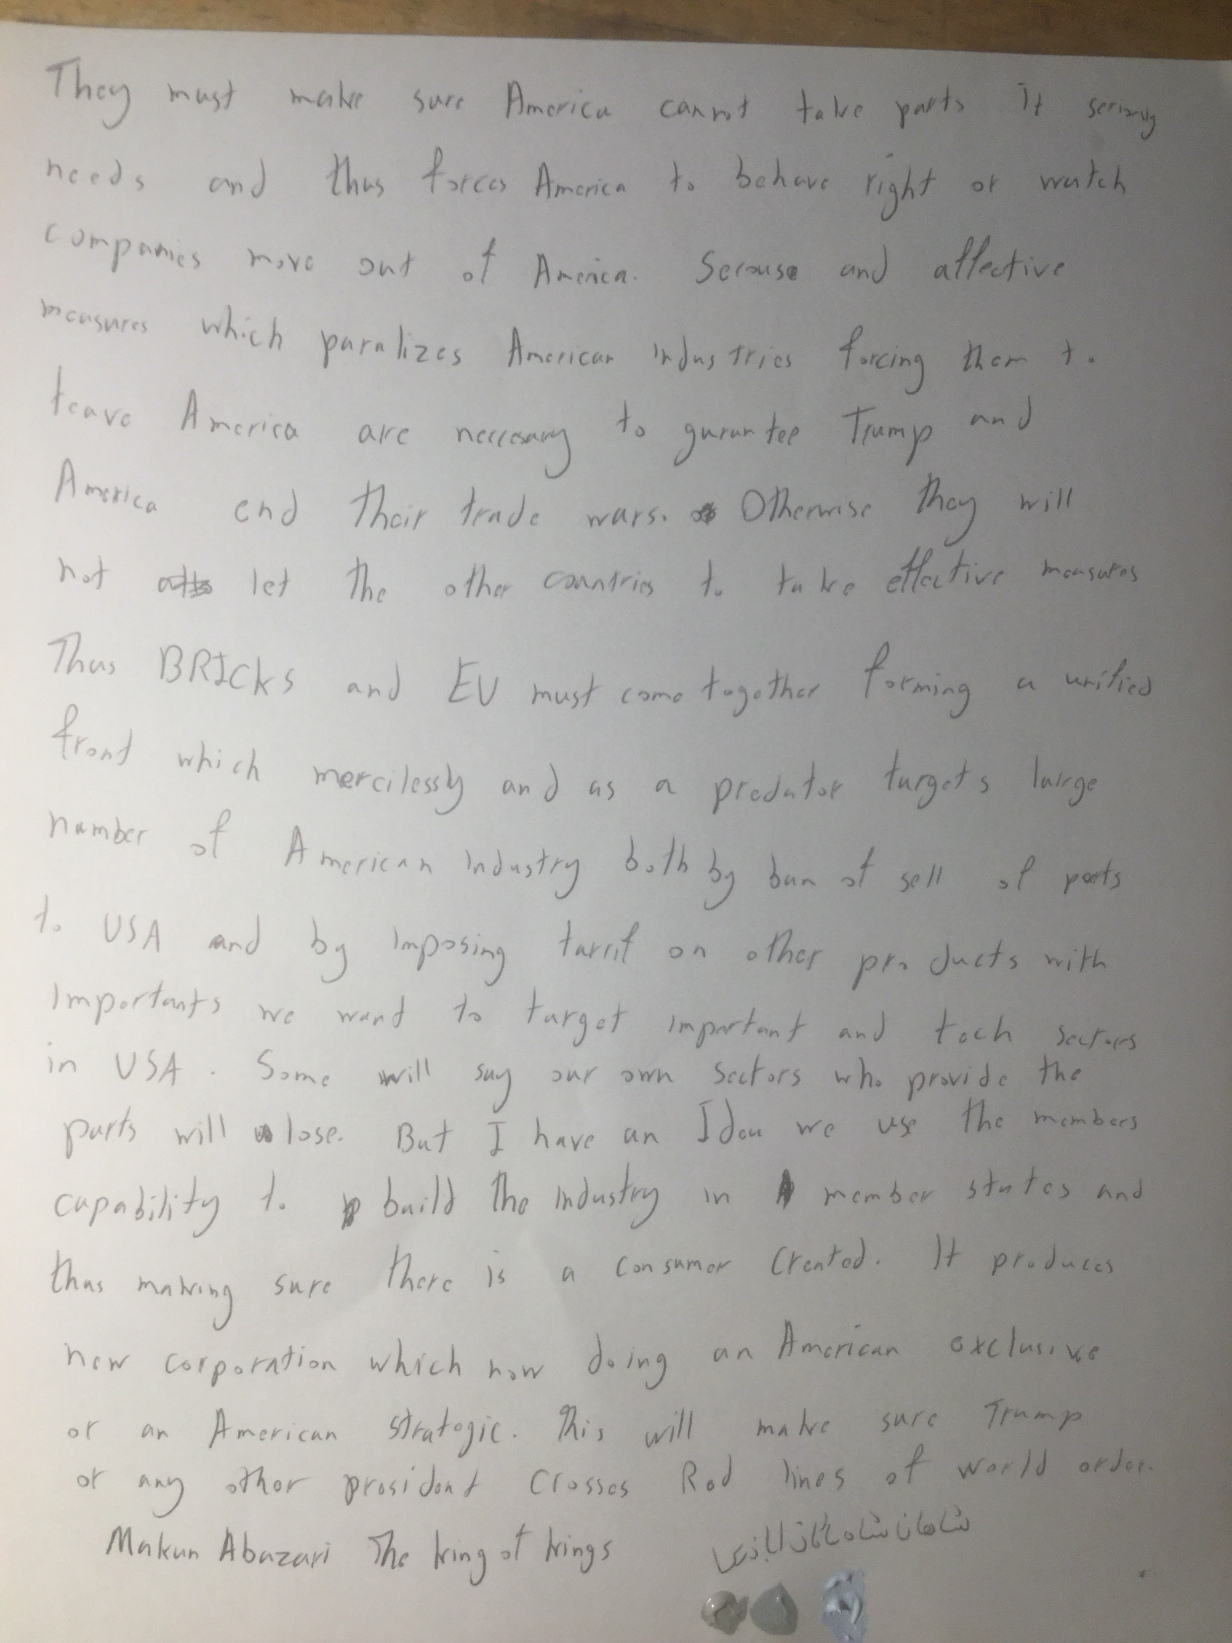 They must make sure America cannot take parts it seriously
needs and thus forces America to behave right or watch
companies move out of America. Serouse and affective
measures which paralizes American industries forcing them to
leave America are neccesary to gurantee Trump and
America end their trade wars. Otherwise they will
not let the other countries to take effective measures
Thus BRICKS and EU must come together forming a unified
front which mercilessly and as a predator targets large
number of American industry both by ban of sell of parts
to USA and by imposing tarrif on other products with
importants we want to target important and tech sectors
in USA. Some will say our own sectors who provide the
parts will lose. But I have an Idea we use the members
capability to build the industry in member states and
thus making sure there is a consumer created. It produces
new corporation which now doing an American exclusive
or an American strategic. This will make sure Trump
or any other president crosses Red lines of world order.
Makan Abazari The king of kings شاهان شاه ماکان اباذری